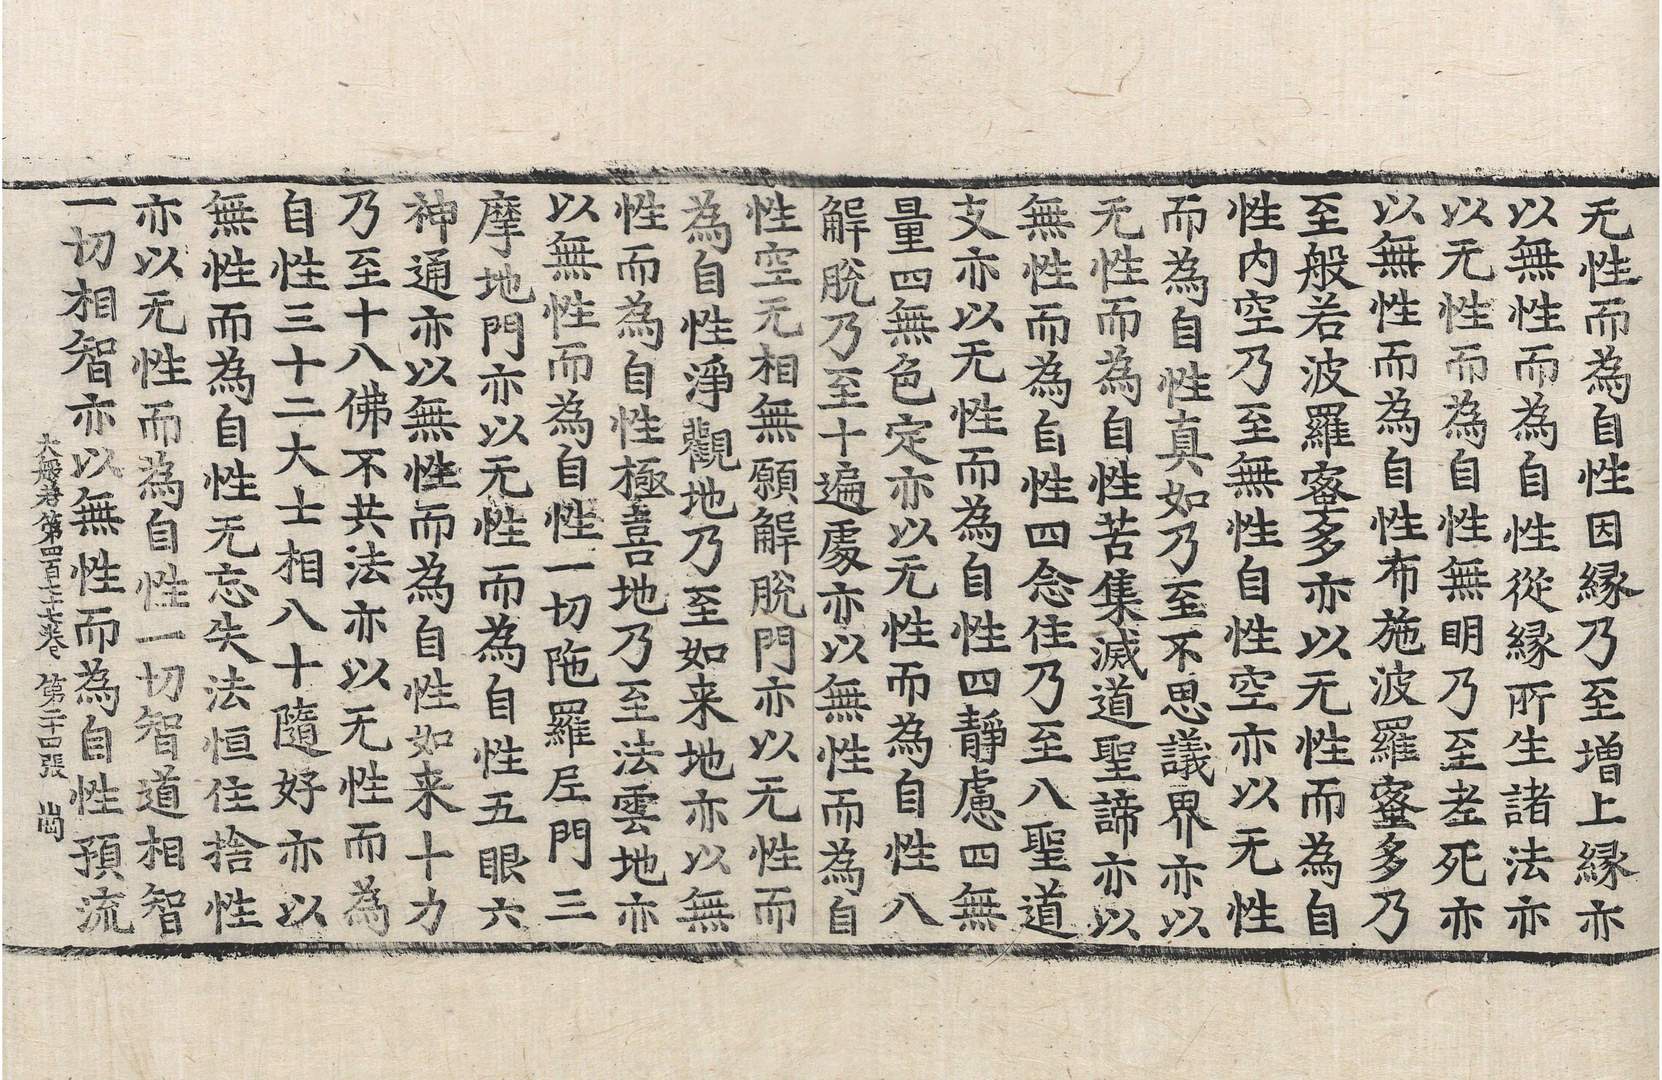 无性而為自性因縁乃至增上縁亦
以無性而為自性從縁所生諸法亦
以无性而為自性無明乃至老死亦
以無性而為自性布施波羅蜜多乃
至般若波羅蜜多亦以无性而為自
性内空乃至無性自性空亦以无性
而為自性真如乃至不思議界亦以
无性而為自性苦集滅道聖諦亦以
無性而為自性四念住乃至八聖道
支亦以无性而為自性四靜慮四無
量四無色定亦以无性而為自性八
解脫乃至十遍處亦以無性而為自
性空无相無願解脫門亦以无性而
為自性淨觀地乃至如来地亦以無
性而為自性極喜地乃至法雲地亦
以無性而為自性一切陁羅尼門三
摩地門亦以无性而為自性五眼六
神通亦以無性而為自性如来十力
乃至十八佛不共法亦以无性而為
自性三十二大士相八十隨好亦以
無性而為自性无忘失法恒住捨性
亦以无性而為自性一切智道相智
一切相智亦以無性而為自性預流
大般若第四百七十七卷 第二十四張